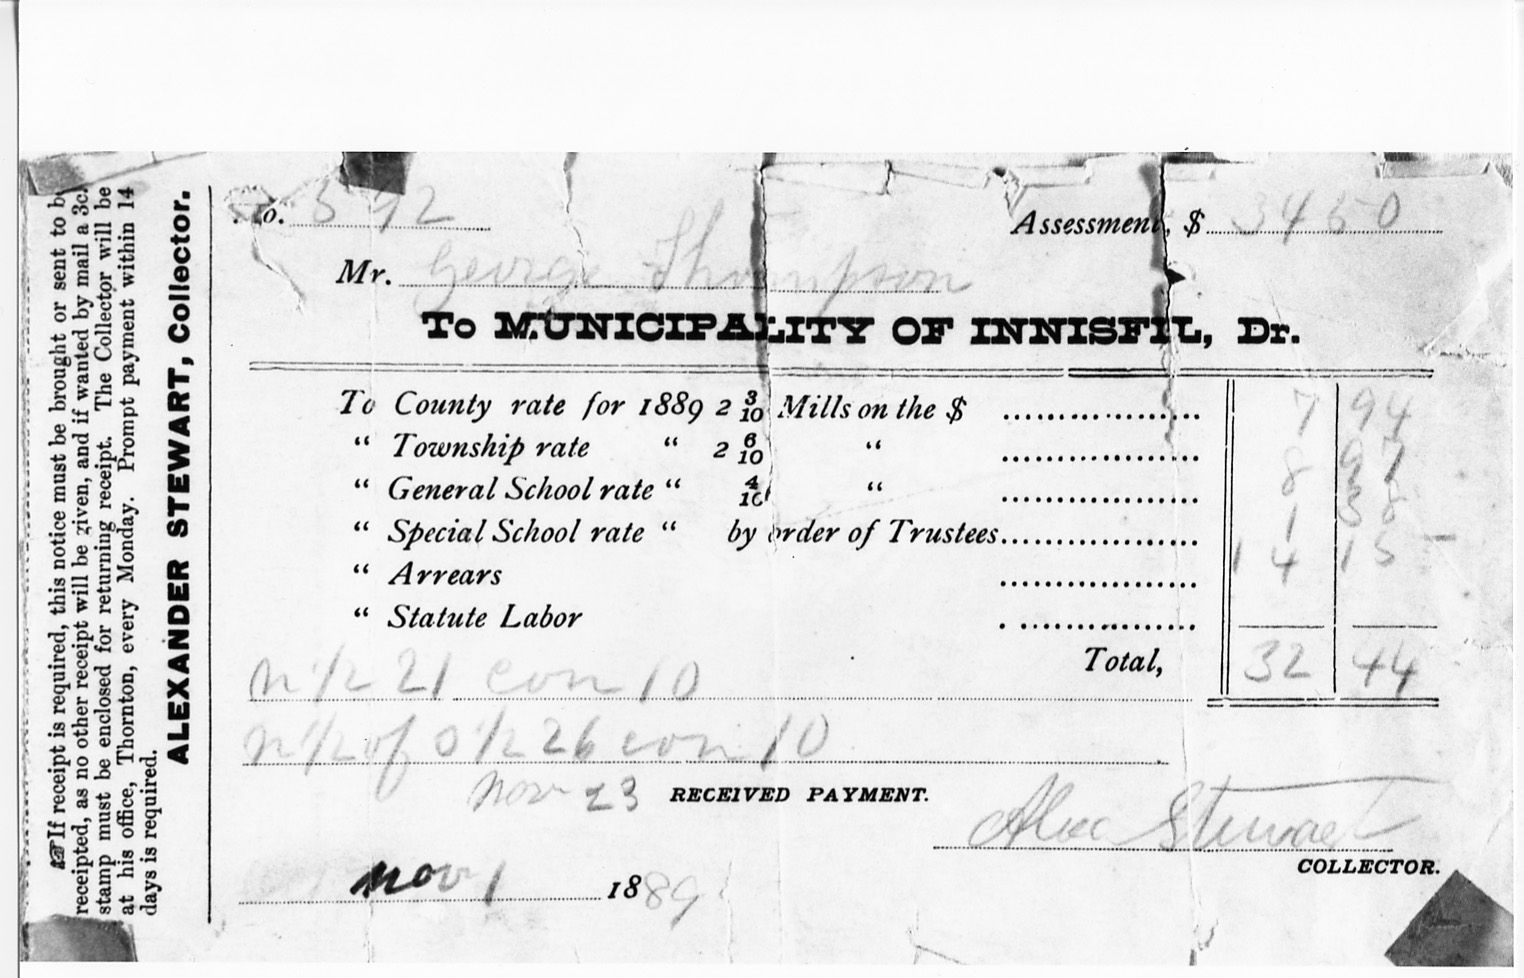 ☞ If receipt is required, this notice must be brought or sent to be
receipted, as no other receipt will be given, and if wanted by mail a 3c.
stamp must be enclosed for returning receipt. The Collector will be
at his office, Thornton, every Monday. Prompt payment within 14
days is required.
ALEXANDER STEWART, Collector.
No. Assessment, $ 3450
Mr. George Thompson
To MUNICIPALITY OF INNISFIL, Dr.
To County rate for 1889 2 3/10 Mills on the $ .................. 7 94
“ Township rate “ 2 6/10 “ .................. 8 97
“ General School rate “ 4/10 “ .................. 1 38
“ Special School rate “ by order of Trustees.................. 14 15
“ Arrears ..................
“ Statute Labor ..................
Total, 32 44
n 1/2 21 con 10
n 1/2 of s 1/2 26 con 10
Nov 23 RECEIVED PAYMENT.
Alex Stewart
COLLECTOR.
Nov 1 1889